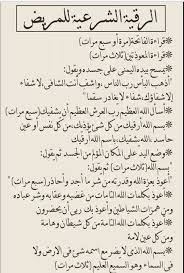 الرقية الشرعية للمريض
*قراءة الفاتحة (مرة أو سبع مرات)
*قراءة المعوذتين (ثلاث مرات)
*يمسح بيده اليمنى على جسده ويقول:
"أذهب الباس رب الناس، واشف أنت الشافي، لا شفاء
إلا شفاؤك، شفاء لا يغادر سقما"
*أسأل الله العظيم رب العرش العظيم أن يشفيك (سبع مرات)
*بسم الله أرقيك من كل شيء يؤذيك، من كل نفس أو عين
حاسد الله يشفيك، باسم الله أرقيك
*وضع اليد على المكان المؤلم من الجسد ثم يقول:
"بسم الله (ثلاث مرات) ثم يقول:
"أعوذ بعزة الله وقدرته من شر ما أجد وأحاذر (سبع مرات)
*أعوذ بكلمات الله التامات من غضبه وعقابه وشر عباده
ومن همزات الشياطين وأعوذ بك ربي أن يحضرون
*أعوذ بكلمات الله التامة من كل شيطان وهامة
ومن كل عين لامة
*بسم الله الذي لا يضر مع اسمه شيء في الارض ولا
في السماء وهو السميع العليم (ثلاث مرات)